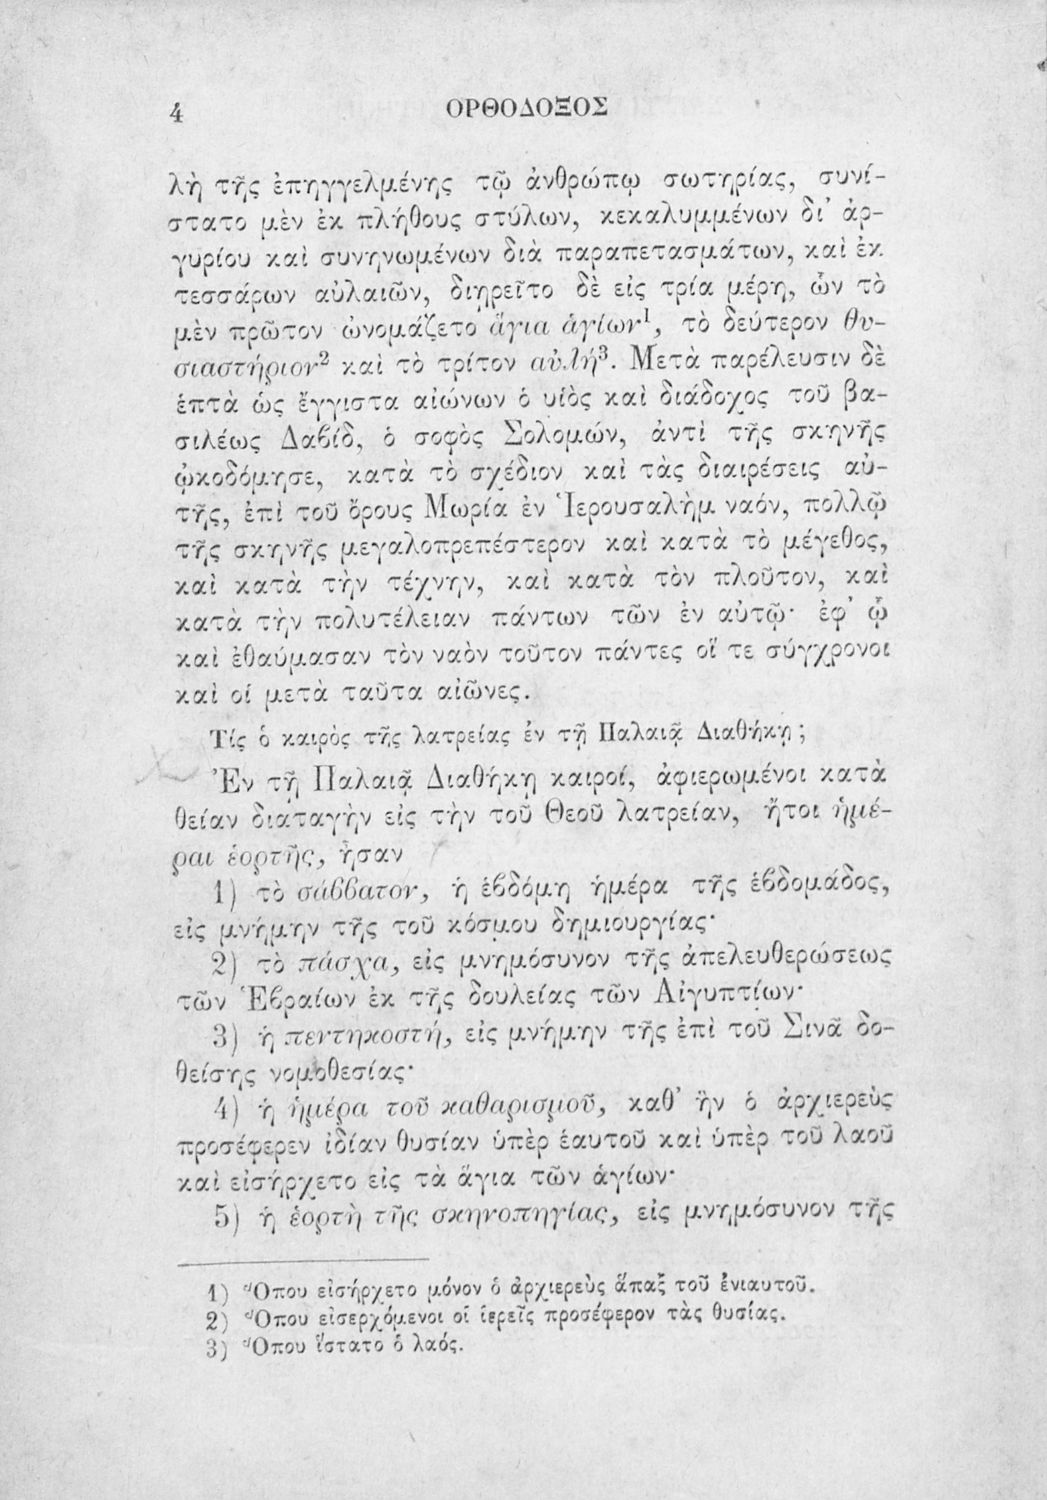 4
ΟΡΘΟΔΟΞΟΣ
λὴ τῆς ἐπηγγελμένης τῷ ἀνθρώπῳ σωτηρίας, συνί-
στατο μὲν ἐκ πλήθους στύλων, κεκαλυμμένων δι’ ἀρ-
γυρίου καὶ συνηνωμένων διὰ παραπετασμάτων, καὶ ἐκ
τεσσάρων αὐλαιῶν, διῃρεῖτο δὲ εἰς τρία μέρη, ὧν τὸ
μὲν πρῶτον ὠνομάζετο ἅγια ἁγίων¹, τὸ δεύτερον θυ-
σιαστήριον² καὶ τὸ τρίτον αὐλή³. Μετὰ παρέλευσιν δὲ
ἑπτὰ ὡς ἔγγιστα αἰώνων ὁ υἱὸς καὶ διάδοχος τοῦ βα-
σιλέως Δαβίδ, ὁ σοφὸς Σολομών, ἀντὶ τῆς σκηνῆς
ᾠκοδόμησε, κατὰ τὸ σχέδιον καὶ τὰς διαιρέσεις αὐ-
τῆς, ἐπὶ τοῦ ὄρους Μωρία ἐν Ἱερουσαλὴμ ναόν, πολλῷ
τῆς σκηνῆς μεγαλοπρεπέστερον καὶ κατὰ τὸ μέγεθος,
καὶ κατὰ τὴν τέχνην, καὶ κατὰ τὸν πλοῦτον, καὶ
κατὰ τὴν πολυτέλειαν πάντων τῶν ἐν αὐτῷ· ἐφ’ ᾧ
καὶ ἐθαύμασαν τὸν ναὸν τοῦτον πάντες οἵ τε σύγχρονοι
καὶ οἱ μετὰ ταῦτα αἰῶνες.
Τίς ὁ καιρὸς τῆς λατρείας ἐν τῇ Παλαιᾷ Διαθήκῃ;
Ἐν τῇ Παλαιᾷ Διαθήκῃ καιροί, ἀφιερωμένοι κατὰ
θείαν διαταγὴν εἰς τὴν τοῦ Θεοῦ λατρείαν, ἤτοι ἡμέ-
ραι ἑορτῆς, ἦσαν
1) τὸ σάββατον, ἡ ἑβδόμη ἡμέρα τῆς ἑβδομάδος,
εἰς μνήμην τῆς τοῦ κόσμου δημιουργίας·
2) τὸ πάσχα, εἰς μνημόσυνον τῆς ἀπελευθερώσεως
τῶν Ἑβραίων ἐκ τῆς δουλείας τῶν Αἰγυπτίων·
3) ἡ πεντηκοστή, εἰς μνήμην τῆς ἐπὶ τοῦ Σινᾶ δο-
θείσης νομοθεσίας·
4) ἡ ἡμέρα τοῦ καθαρισμοῦ, καθ’ ἣν ὁ ἀρχιερεὺς
προσέφερεν ἰδίαν θυσίαν ὑπὲρ ἑαυτοῦ καὶ ὑπὲρ τοῦ λαοῦ
καὶ εἰσήρχετο εἰς τὰ ἅγια τῶν ἁγίων·
5) ἡ ἑορτὴ τῆς σκηνοπηγίας, εἰς μνημόσυνον τῆς
1) Ὅπου εἰσήρχετο μόνον ὁ ἀρχιερεὺς ἅπαξ τοῦ ἐνιαυτοῦ.
2) Ὅπου εἰσερχόμενοι οἱ ἱερεῖς προσέφερον τὰς θυσίας.
3) Ὅπου ἵστατο ὁ λαός.